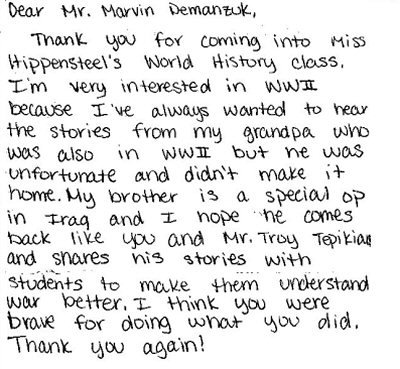 Dear Mr. Marvin Demanzuk,
Thank you for coming into Miss
Hippensteel's World History class.
I'm very interested in WWII
because I've always wanted to hear
the stories from my grandpa who
was also in WWII but he was
unfortunate and didn't make it
home. My brother is a special op
in Iraq and I hope he comes
back like you and Mr. Troy Tepikian
and shares his stories with
students to make them understand
war better. I think you were
brave for doing what you did.
Thank you again!